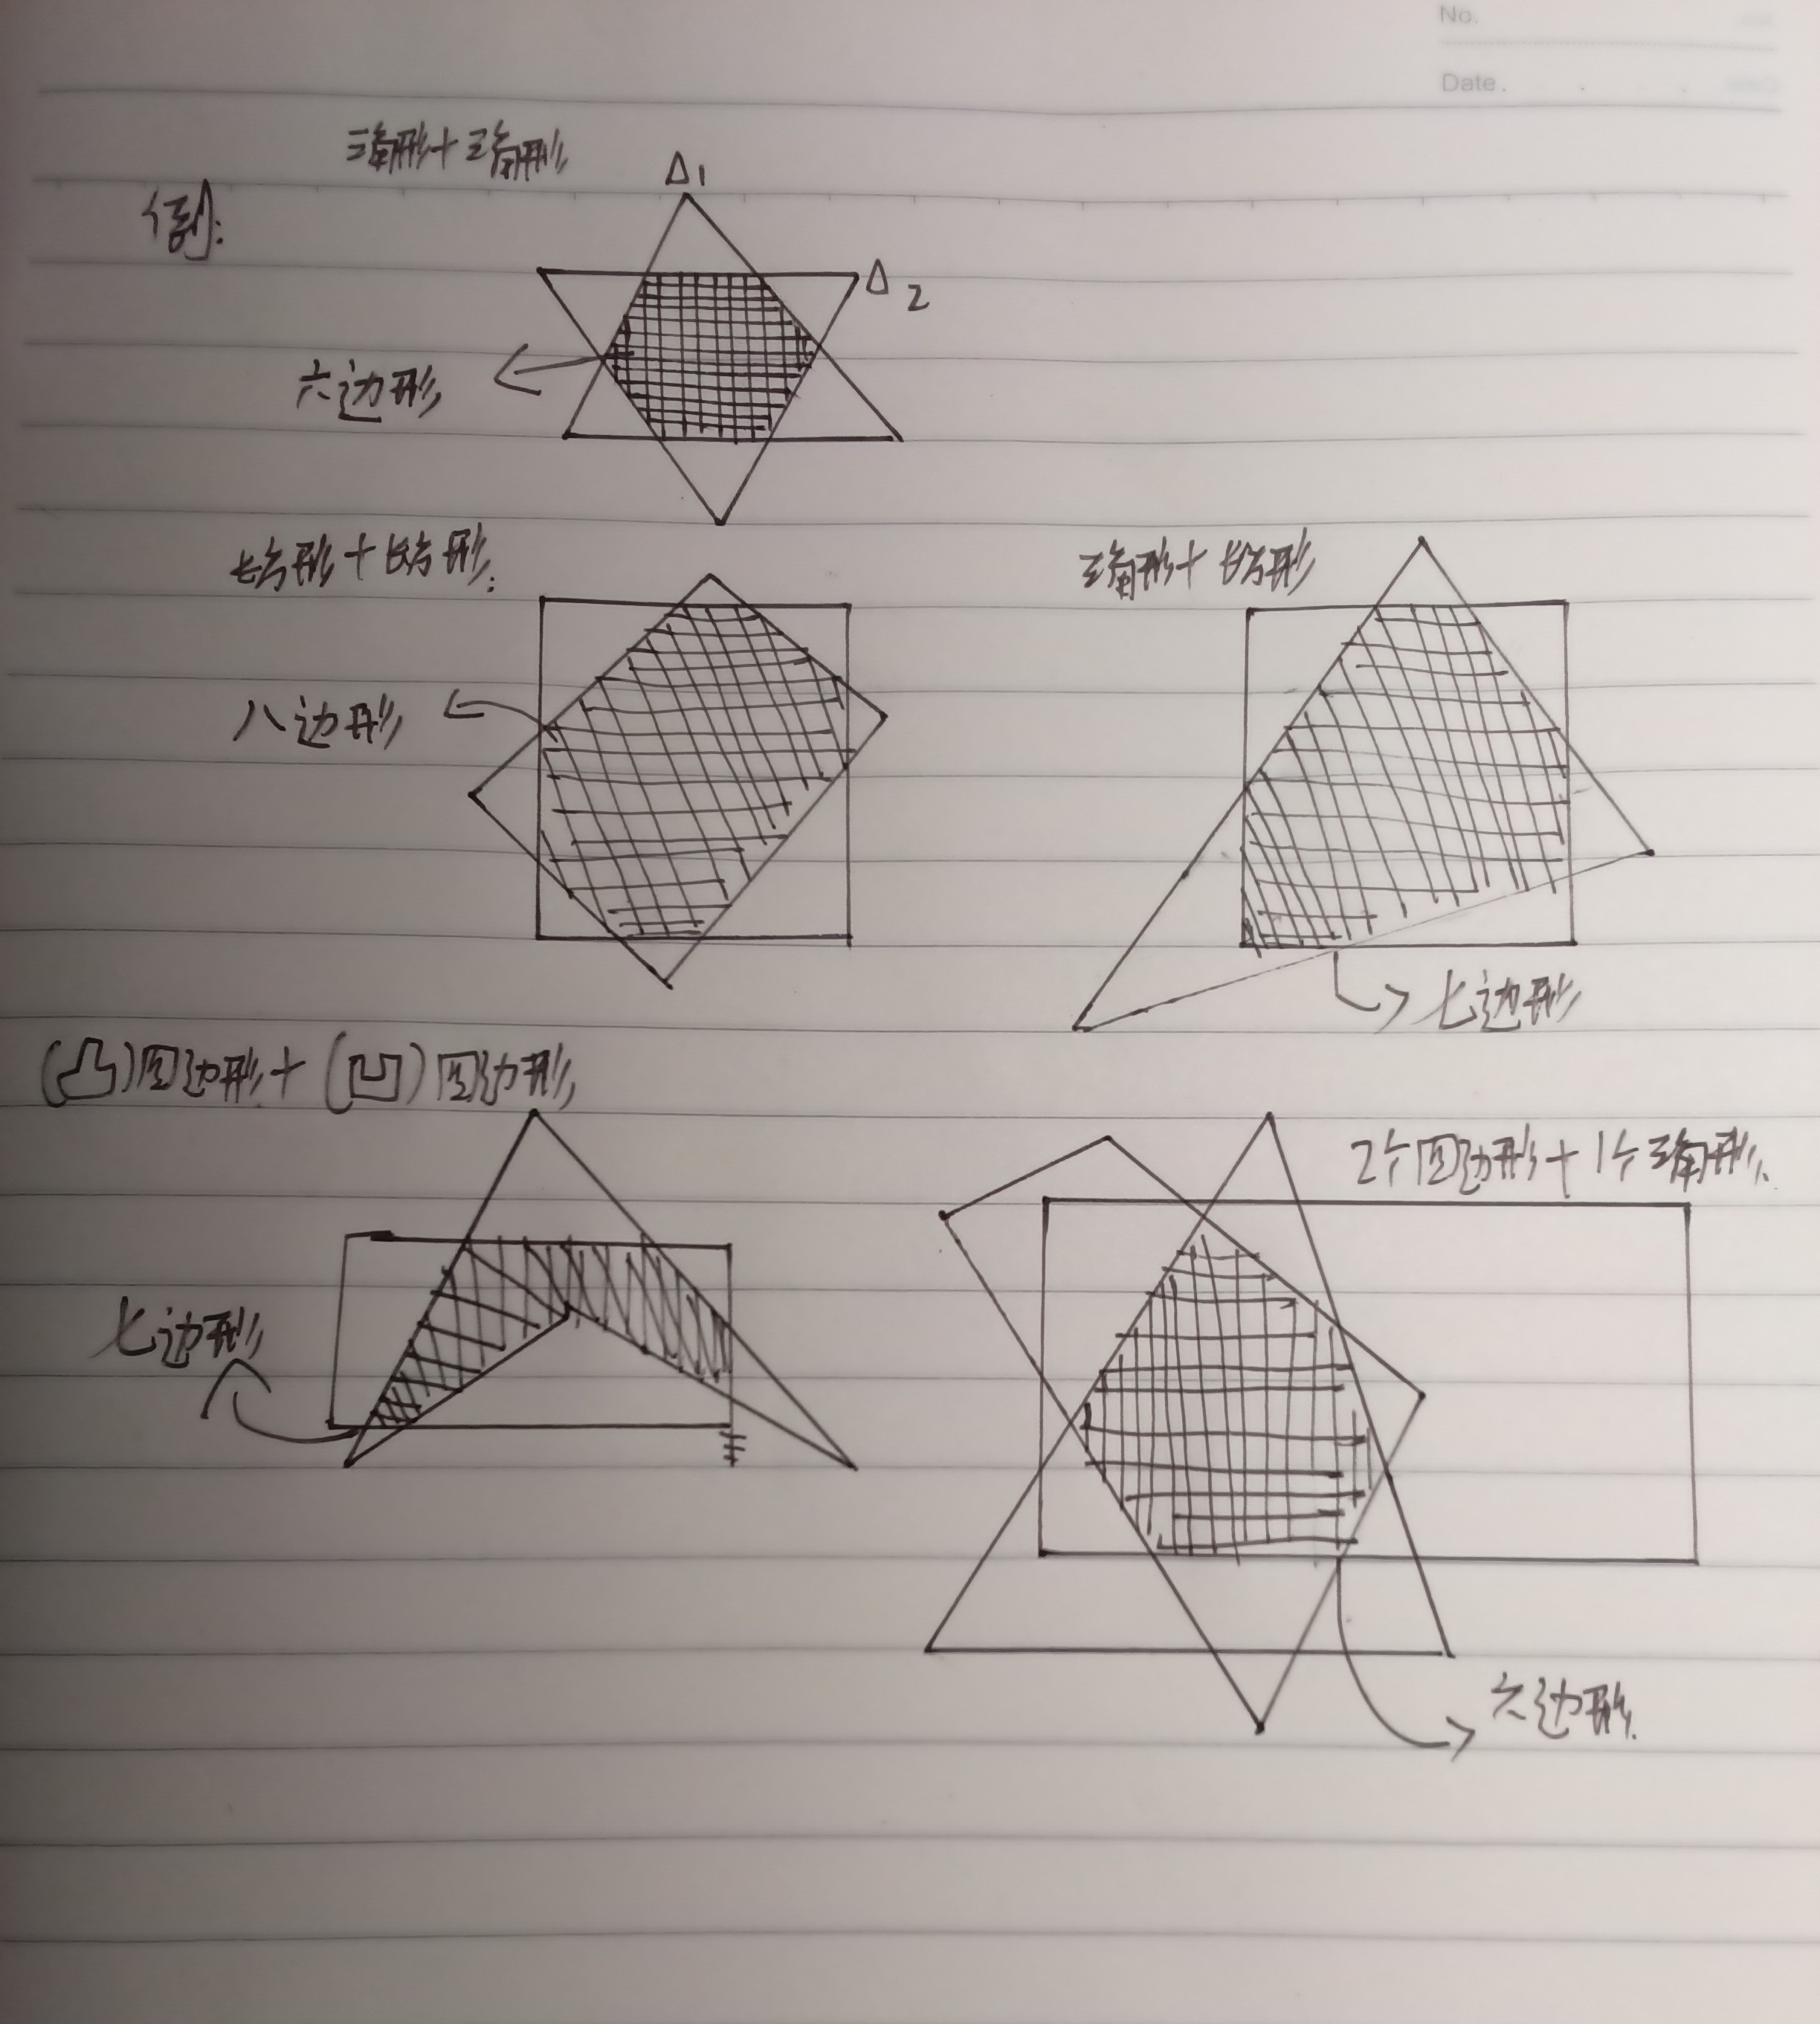 No.
Date.
三角形+三角形
Δ1
例:
Δ2
六边形
长方形+长方形:
三角形+长方形
八边形
七边形
(凸)四边形+(凹)四边形
2个四边形+1个三角形.
七边形
六边形.